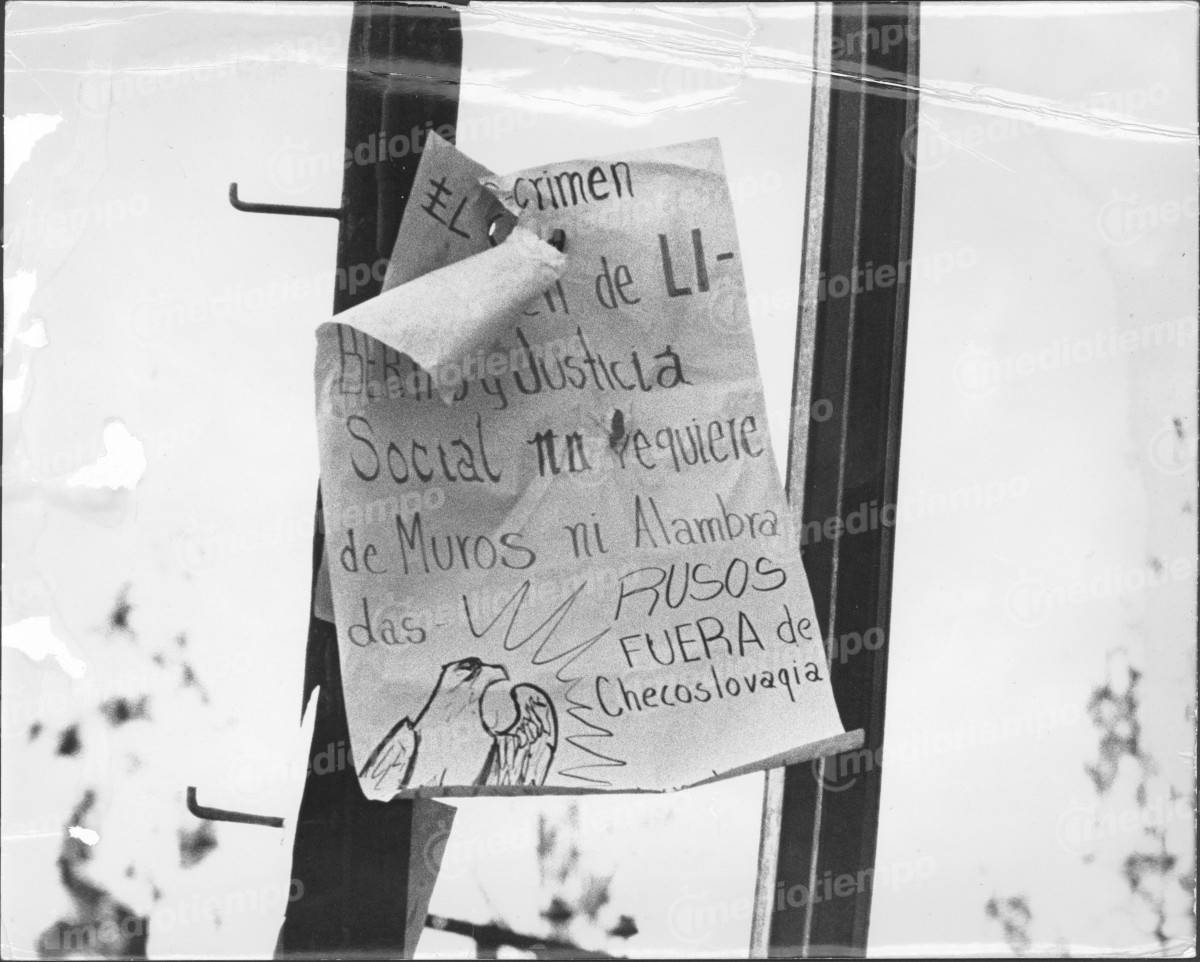 EL crimen
de LI-
y Justicia
Social no requiere
de Muros ni Alambra
das-
RUSOS
FUERA de
Checoslovaqia
mediotiempo